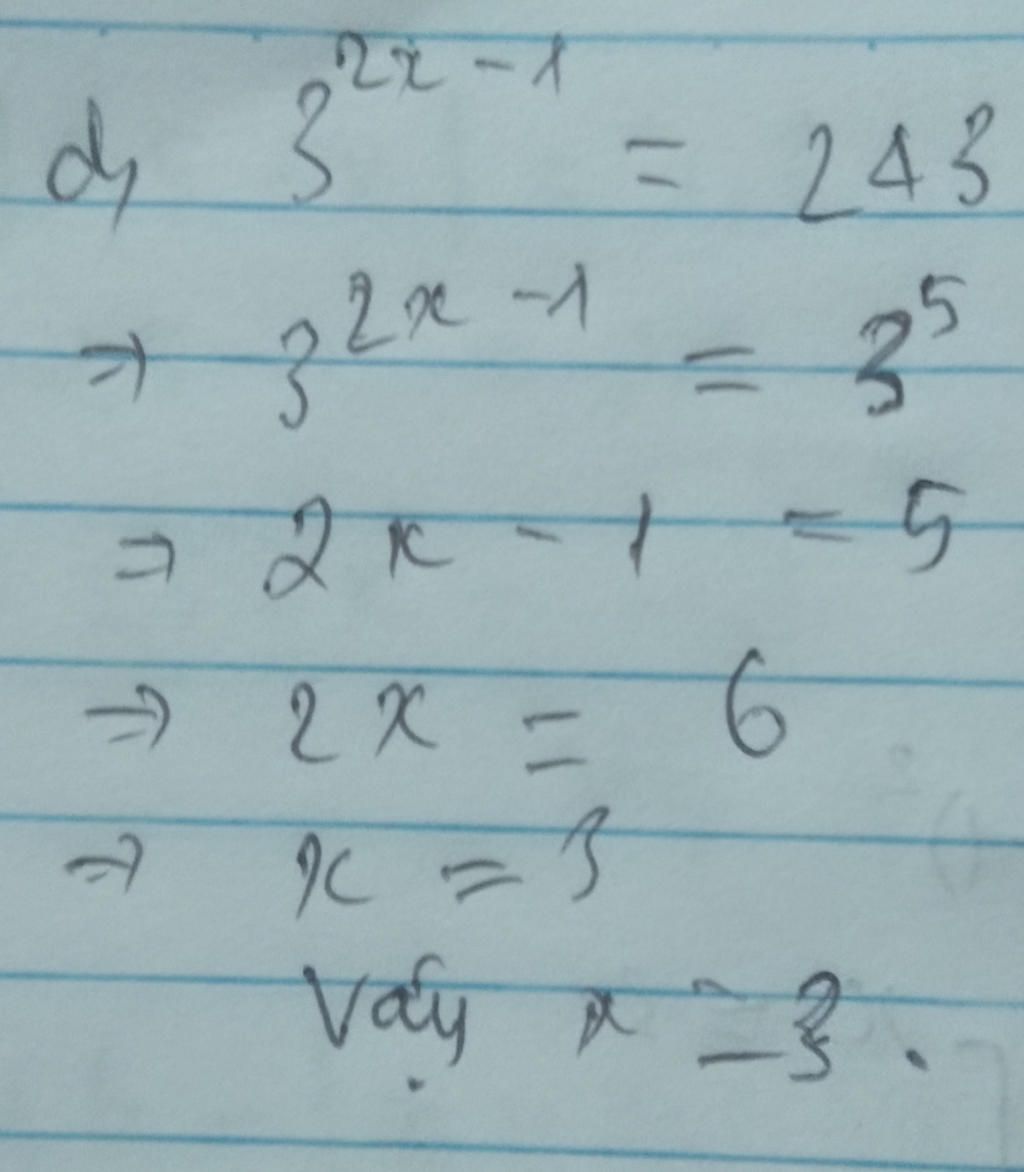 d, 3^{2x-1} = 243
⇒ 3^{2x-1} = 3^5
⇒ 2x - 1 = 5
⇒ 2x = 6
⇒ x = 3
Vậy x = 3.